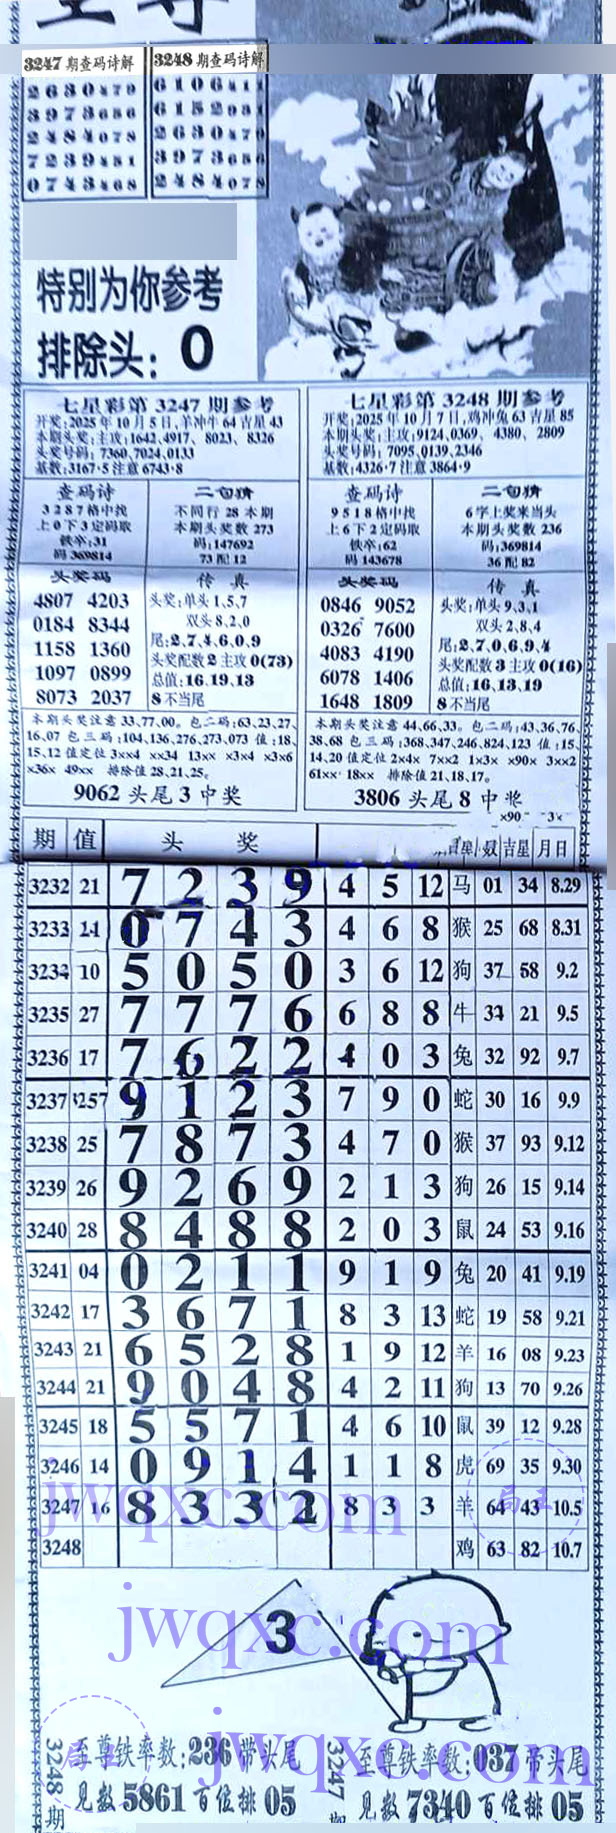 3247 期查码诗解
2 6 3 0 4 7 9
3 9 7 3 6 5 6
2 4 8 4 0 7 8
7 2 3 9 4 5 1
0 7 4 3 4 6 8
3248 期查码诗解
6 1 0 6 4 1 1
6 1 5 2 0 3 1
2 6 3 0 4 7 9
3 9 7 3 6 5 6
2 4 8 4 0 7 8
特别为你参考
排除头：0
七星彩第 3247 期参考
开奖：2025 年 10 月 5 日,羊冲牛 64 吉星 43
本期头奖：主攻：1642,4917、8023、8326
头奖号码：7360,7024,0133
基数：3167·5 注意 6743·8
查码诗
3 2 8 7 格中找
上 0 下 3 定码取
铁卒：31
码 369814
二句猜
不同行 28 本期
本期头奖数 273
码：147692
73 配 12
头奖码
4807 4203
0184 8344
1158 1360
1097 0899
8073 2037
传 真
头奖：单头 1、5、7
双头 8、2、0
尾：2、7、4、6、0、9
头奖配数 2 主攻 0(73)
总值：16、19、13
8 不当尾
本期头奖注意 33、77、00。包二码：63、23、27、
16、07 包三码：104、136、276、273、073 值：18、
15、12 值定位 3××4 ××34 13×× ×3×4 ×3×6
×36× 49×× 排除值 28、21、25。
9062 头尾 3 中奖
七星彩第 3248 期参考
开奖：2025 年 10 月 7 日,鸡冲兔 63 吉星 85
本期头奖：主攻：9124,0369、4380、2809
头奖号码：7095,0139,2346
基数：4326·7 注意 3864·9
查码诗
9 5 1 8 格中找
上 6 下 2 定码取
铁卒：62
码 143678
二句猜
6 字上奖来当头
本期头奖数 236
码：369814
36 配 82
头奖码
0846 9052
0326 7600
4083 4190
6078 1406
1648 1809
传 真
头奖：单头 9、3、1
双头 2、8、4
尾：2、7、0、6、9、4
头奖配数 3 主攻 0(16)
总值：16、13、19
8 不当尾
本期头奖注意 44、66、33。包二码：43、36、76、
38、68 包三码：368、347、246、824、123 值：15、
14、20 值定位 2×4× 7××2 1×3× ×90× 3××2
61×× 18×× 排除值 21、18、17。
3806 头尾 8 中奖
×90 3×
期 值 头 奖 吉星 月日
3232 21 7 2 3 9 4 5 12 马 01 34 8.29
3233 14 0 7 4 3 4 6 8 猴 25 68 8.31
3234 10 5 0 5 0 3 6 12 狗 37 58 9.2
3235 27 7 7 7 6 6 8 8 牛 34 21 9.5
3236 17 7 6 2 2 4 0 3 兔 32 92 9.7
3237 257 9 1 2 3 7 9 0 蛇 30 16 9.9
3238 25 7 8 7 3 4 7 0 猴 37 93 9.12
3239 26 9 2 6 9 2 1 3 狗 26 15 9.14
3240 28 8 4 8 8 2 0 3 鼠 24 53 9.16
3241 04 0 2 1 1 9 1 9 兔 20 41 9.19
3242 17 3 6 7 1 8 3 13 蛇 19 58 9.21
3243 21 6 5 2 8 1 9 12 羊 16 08 9.23
3244 21 9 0 4 8 4 2 11 狗 13 70 9.26
3245 18 5 5 7 1 4 6 10 鼠 39 12 9.28
3246 14 0 9 1 4 1 1 8 虎 69 35 9.30
3247 16 8 3 3 2 8 3 3 羊 64 43 10.5
3248 鸡 63 82 10.7
jwqxc.com
3
jwqxc.com
3248 期
至尊铁率数：236 带头尾
见数 5861 百位排 05
3247 期
至尊铁率数：037 带头尾
见数 7340 百位排 05
jwqxc.com